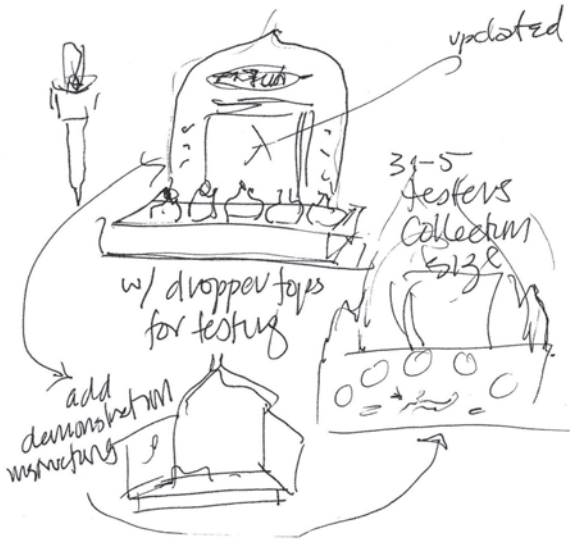 updated
3-5
testers
Collection
Size
w/ dropper tops
for testing
add
demonstration
instructions